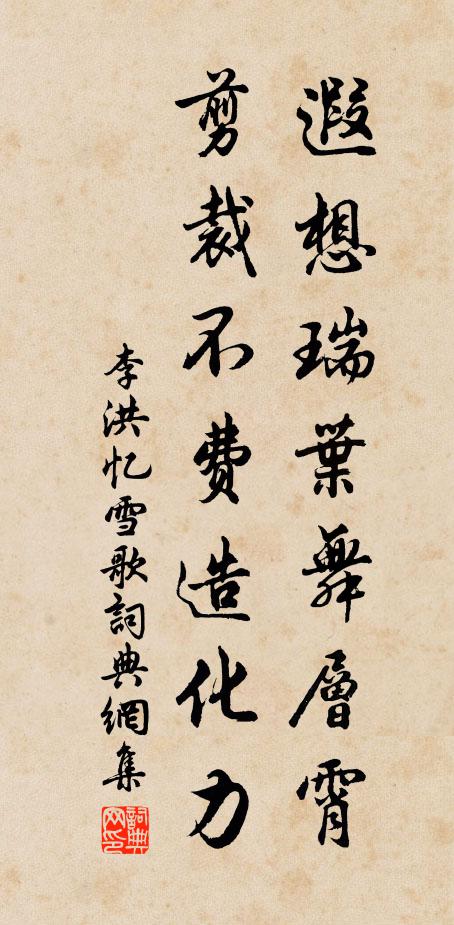 遐想瑞葉舞層霄
剪裁不費造化力
李洪忆雪歌詞典網集
詞典網印